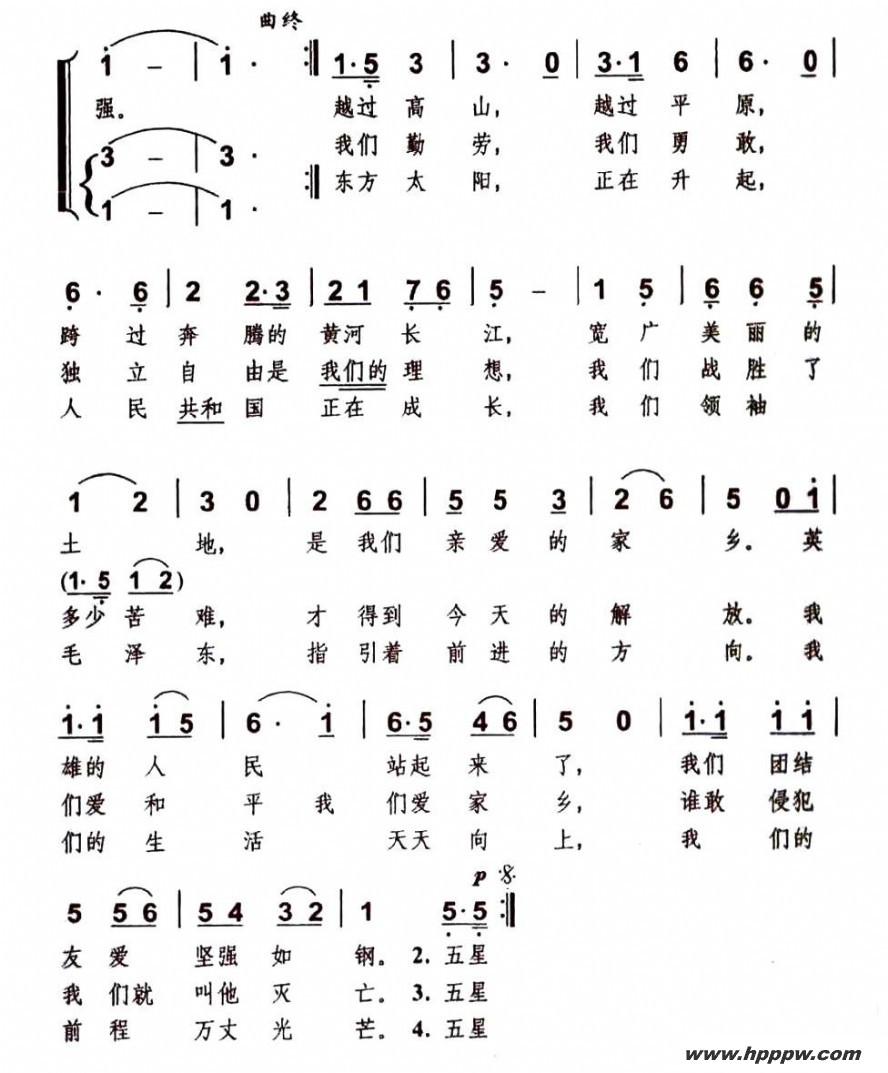 曲终
1 – | 1 · :‖ 1·5 3 | 3· 0 | 3·1 6 | 6· 0 |
强。 越过 高 山， 越过 平 原，
我们 勤 劳， 我们 勇 敢，
3 – | 3 ·
东方 太 阳， 正在 升 起，
1 – | 1 ·
6 · 6 | 2 2·3 | 2 1 7 6 | 5 – | 1 5 | 6 6 5 |
跨 过 奔 腾的 黄河 长 江， 宽 广 美 丽 的
独 立 自 由是 我们的 理 想， 我 们 战 胜 了
人 民 共和 国 正在 成 长， 我 们 领 袖
1 2 | 3 0 | 2 6 6 | 5 5 3 | 2 6 | 5 0 1 |
土 地， 是 我们 亲 爱 的 家 乡。 英
(1· 5 1 2)
多少 苦 难， 才 得到 今 天 的 解 放。 我
毛 泽 东， 指 引着 前 进 的 方 向。 我
1·1 1 5 | 6 · 1 | 6·5 4 6 | 5 0 | 1·1 1 1 |
雄的 人 民 站起 来 了， 我们 团结
们爱 和 平 我 们爱 家 乡， 谁敢 侵犯
们的 生 活 天天 向 上， 我 们的
p 𝄋
5 5 6 | 5 4 3 2 | 1 5·5 :‖
友 爱 坚强 如 钢。 2. 五星
我 们就 叫他 灭 亡。 3. 五星
前 程 万丈 光 芒。 4. 五星
www.hpppw.com